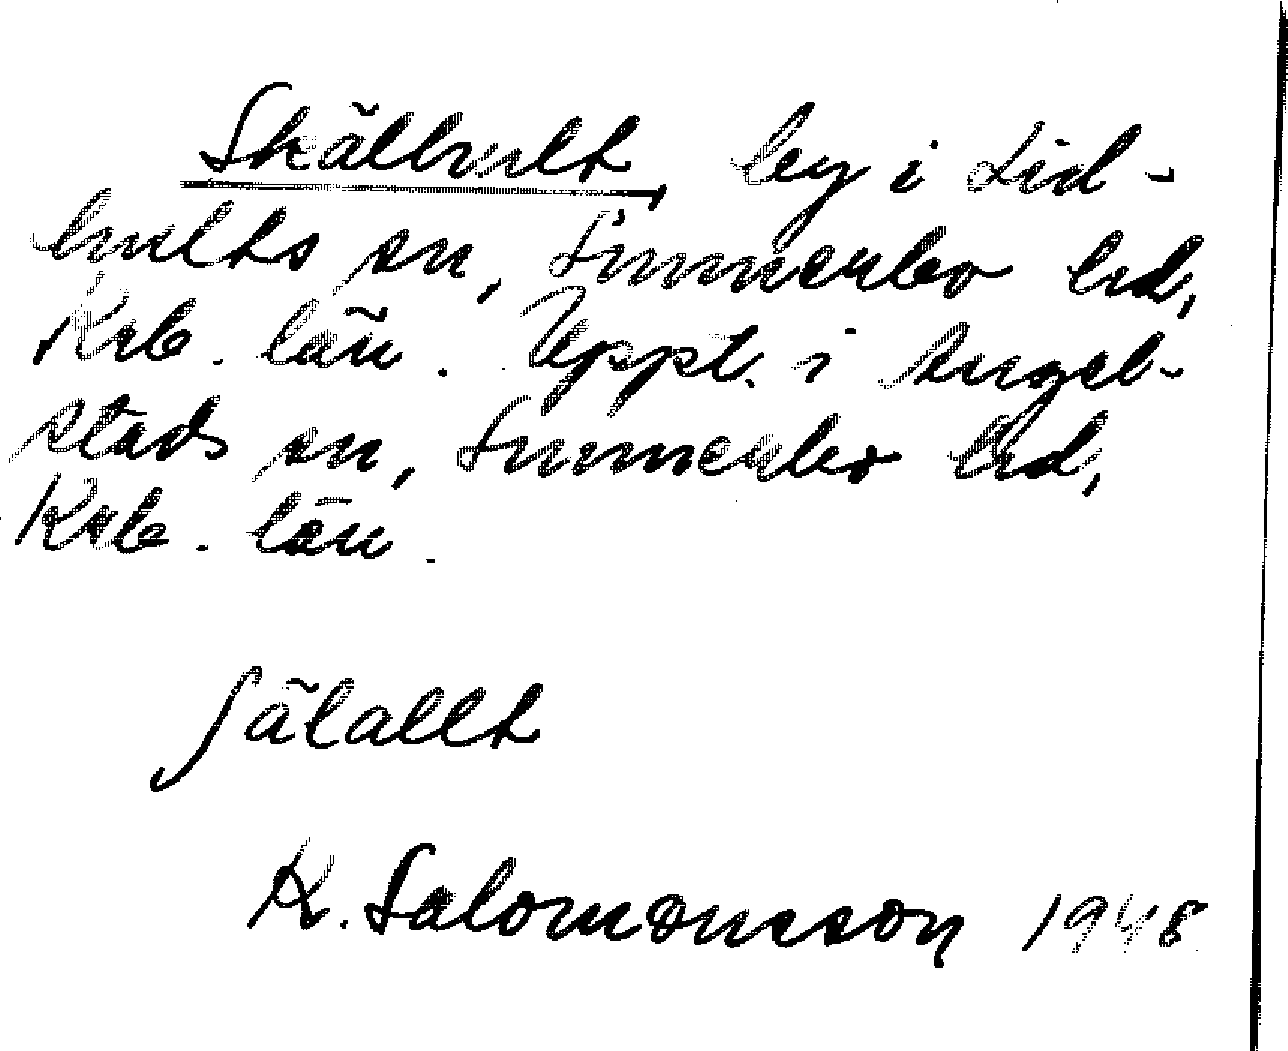 Skälhult, by i Lid-
hults sn, Sunnerbo hd,
Krb. län. Uppt. i Angel-
stads sn, Sunnerbo hd,
Krb. län.
ʃälallt
K. Salomonsson 1948